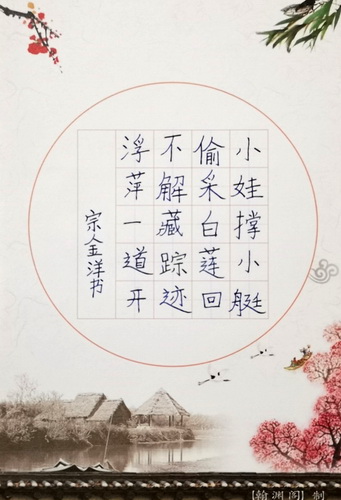 小娃撑小艇
偷采白莲回
不解藏踪迹
浮萍一道开
宗金洋书
【翰渊阁】制